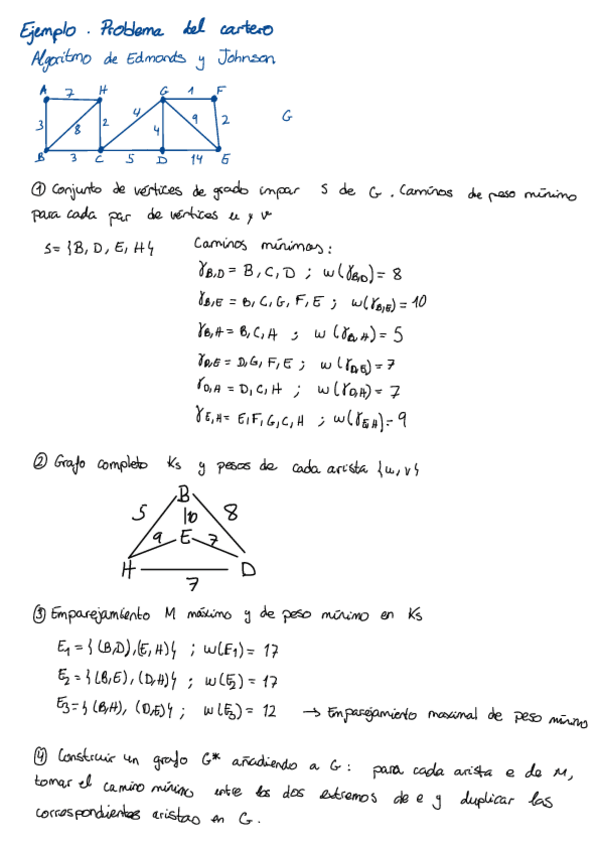 Ejemplo. Problema del cartero
Algoritmo de Edmonds y Johnson
A 7 H G 1 F
3 8 2 4 4 9 2 G
B 3 C 5 D 14 E
① Conjunto de vértices de grado impar S de G. Caminos de peso mínimo
para cada par de vértices u y v
S = {B, D, E, H} Caminos mínimos:
γB,D = B, C, D ; w(γB,D) = 8
γB,E = B, C, G, F, E ; w(γB,E) = 10
γB,H = B, C, H ; w(γB,H) = 5
γD,E = D, G, F, E ; w(γD,E) = 7
γD,H = D, C, H ; w(γD,H) = 7
γE,H = E, F, G, C, H ; w(γE,H) = 9
② Grafo completo Ks y pesos de cada arista {u, v}
B
5 10 8
9 E 7
H D
7
③ Emparejamiento M máximo y de peso mínimo en Ks
E1 = {(B,D), (E,H)} ; w(E1) = 17
E2 = {(B,E), (D,H)} ; w(E2) = 17
E3 = {(B,H), (D,E)} ; w(E3) = 12 → Emparejamiento maximal de peso mínimo
④ Construir un grafo G* añadiendo a G: para cada arista e de M,
tomar el camino mínimo entre los dos extremos de e y duplicar las
correspondientes aristas en G.